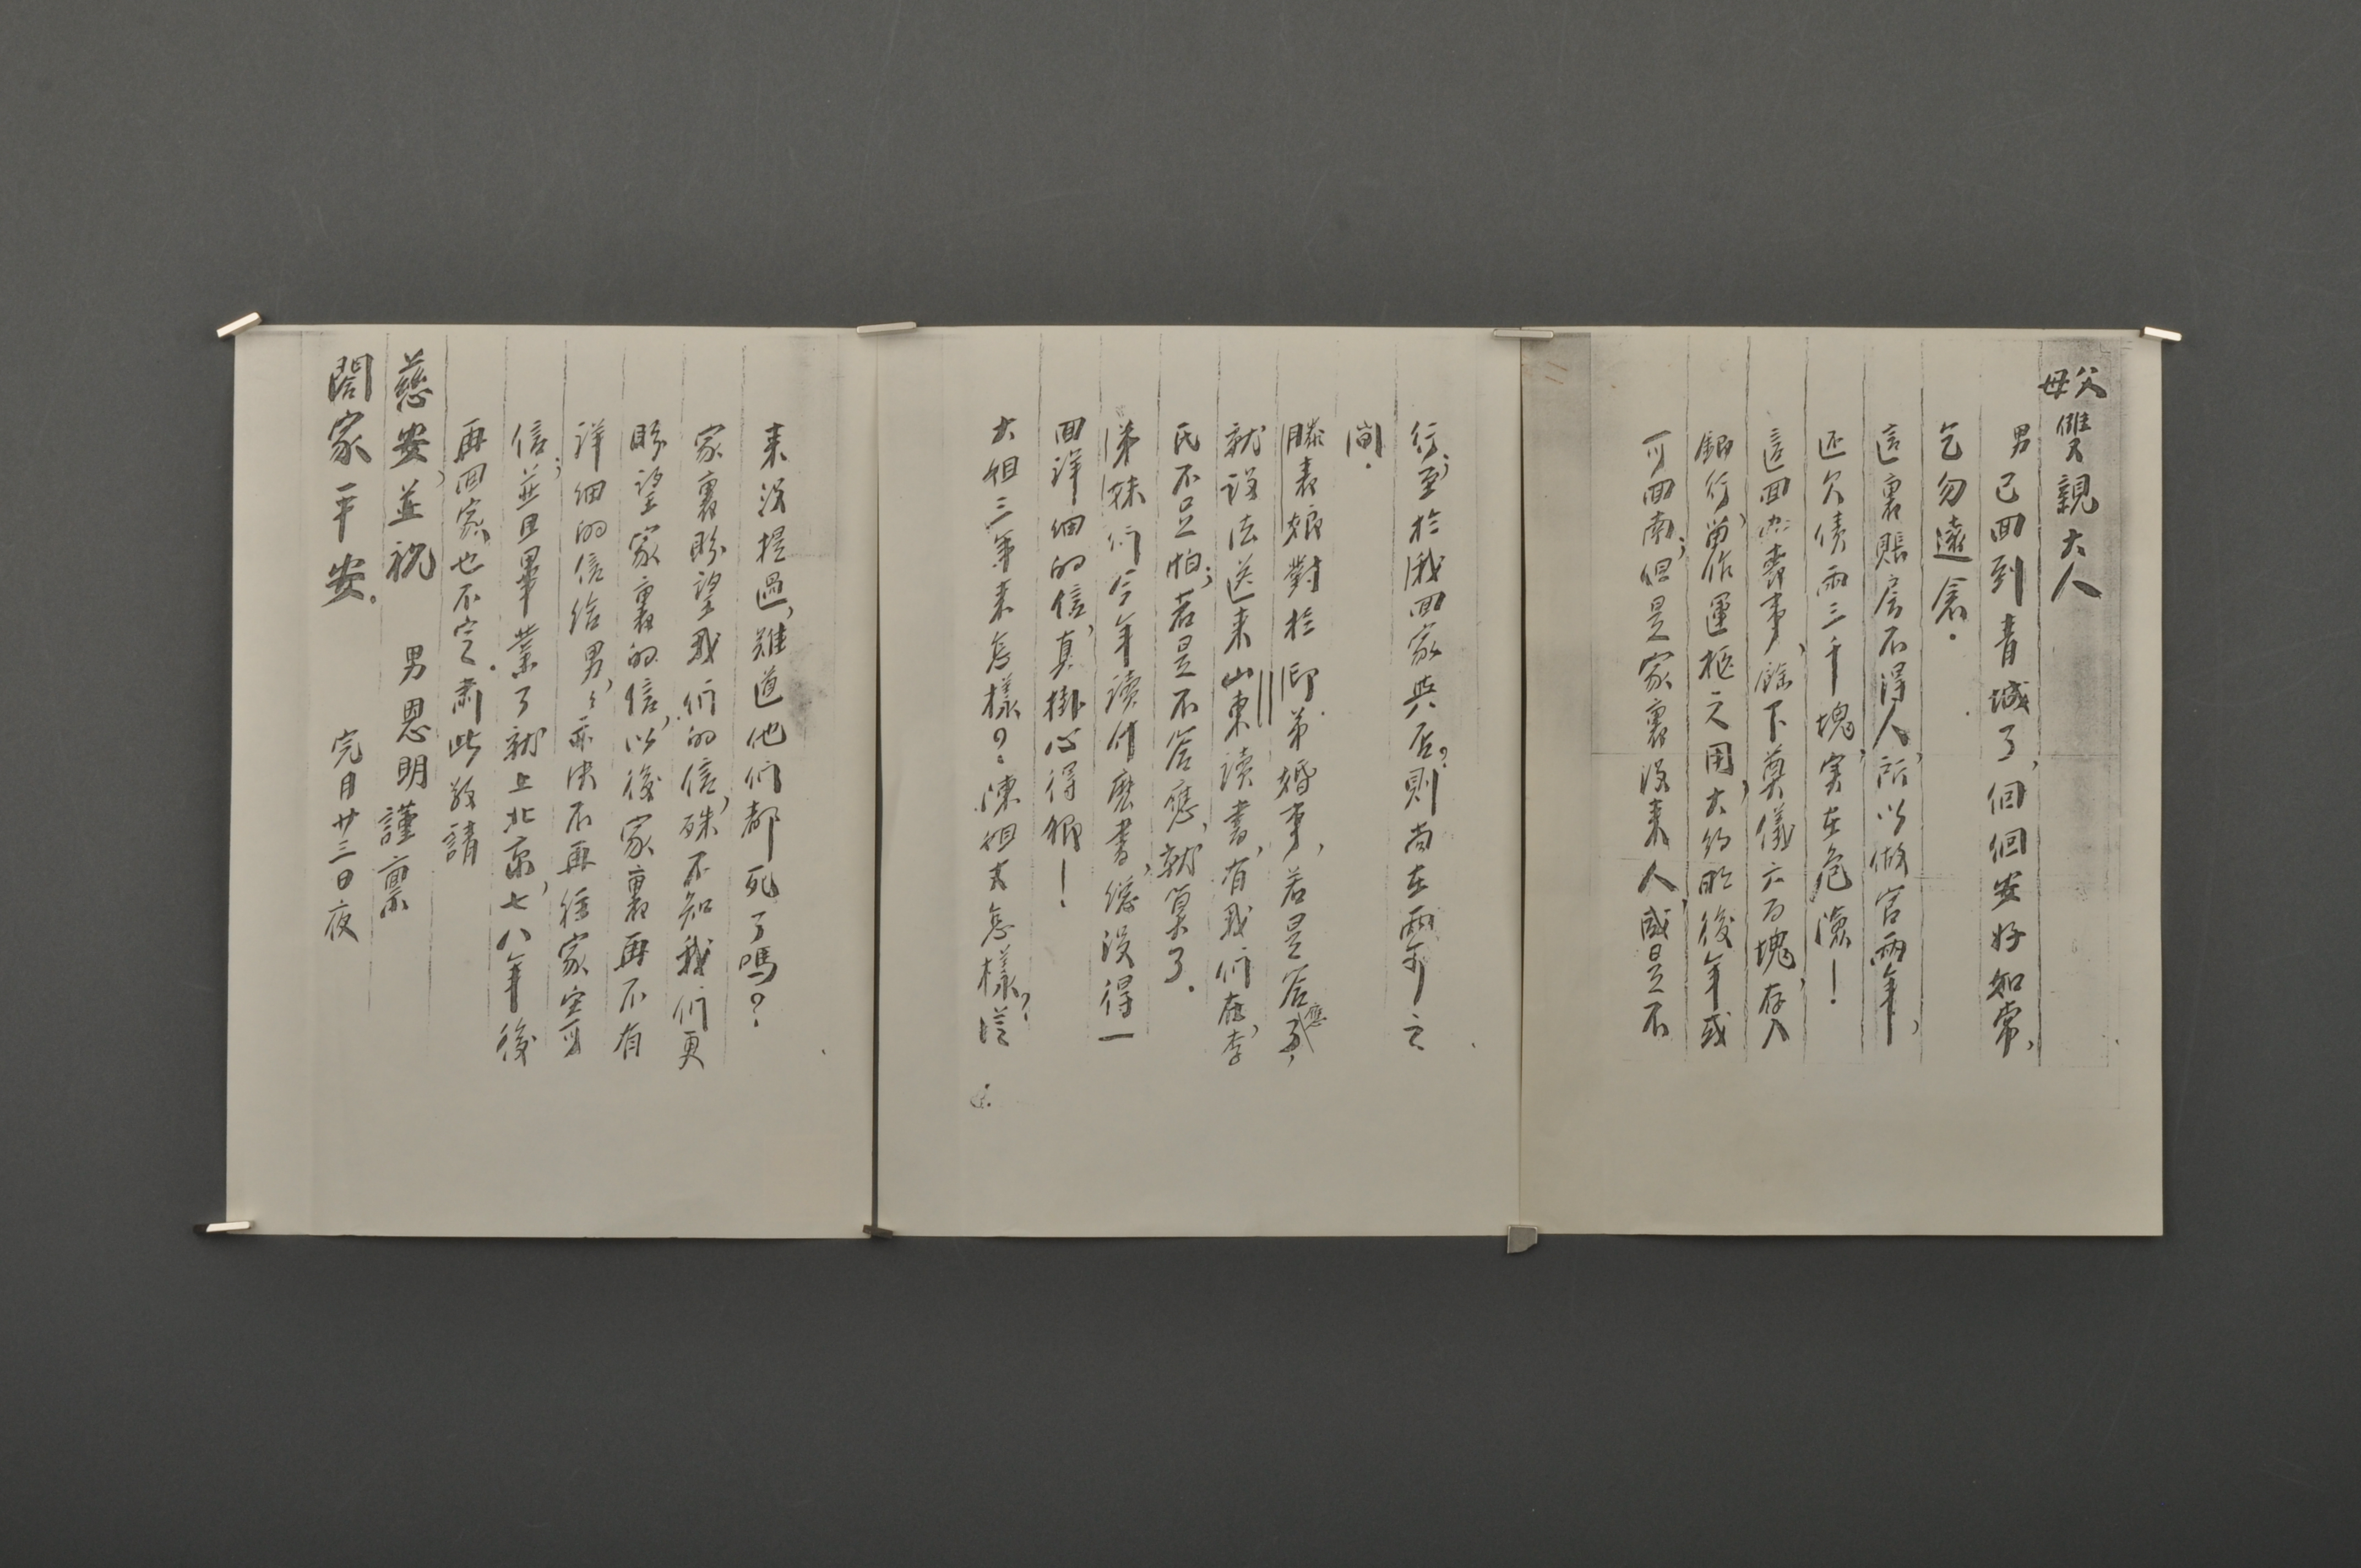 父母雙親大人
男已回到青城了，個個安好如常，
乞勿遠念．
這裏賬房不得人，所以做官兩年，
还欠债兩三千塊，实在危濱！
這回办喪事，餘下奠儀六百塊，存入
銀行，留作運柩之用，大約明後年或
可回南；但是家裏沒來人，或是不
行；至於我回家與否？則尚在兩可之
間．
滕表娘對於卿弟婚事，若是答應了，
就設法送來山東讀書，有我們在，李
氏不足怕；若是不答應，就算了．
弟妹们今年讀什麽書，總沒得一
回詳细的信，真掛心得狠！
大姐三年來怎樣？陳姐夫怎樣？從
来沒提過，難道他们都死了嗎？
家裏盼望我们的信，殊不知我们更
盼望家裏的信，以後家裏再不有
詳细的信给男，男亦决不再往家寄
信；並且畢業了就上北京，七八年後
再回家，也不定．肅此敬請
慈安，並祝
閤家平安。
男恩明謹禀
完月廿三日夜